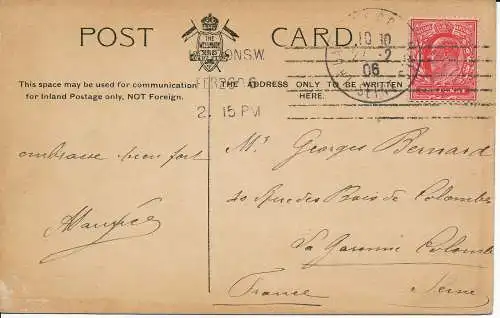 POST CARD
THE
WELLINGTON
This space may be used for communication
for Inland Postage only, NOT Foreign.
THE ADDRESS ONLY TO BE WRITTEN
HERE.
LONDON S.W.
2. 15 PM
10 10
06
SEINE
embrasse bien fort
Maurice
Mr Georges Bernard
40 Rue des Bois de Colombes
La Garenne Colombe
Seine
France